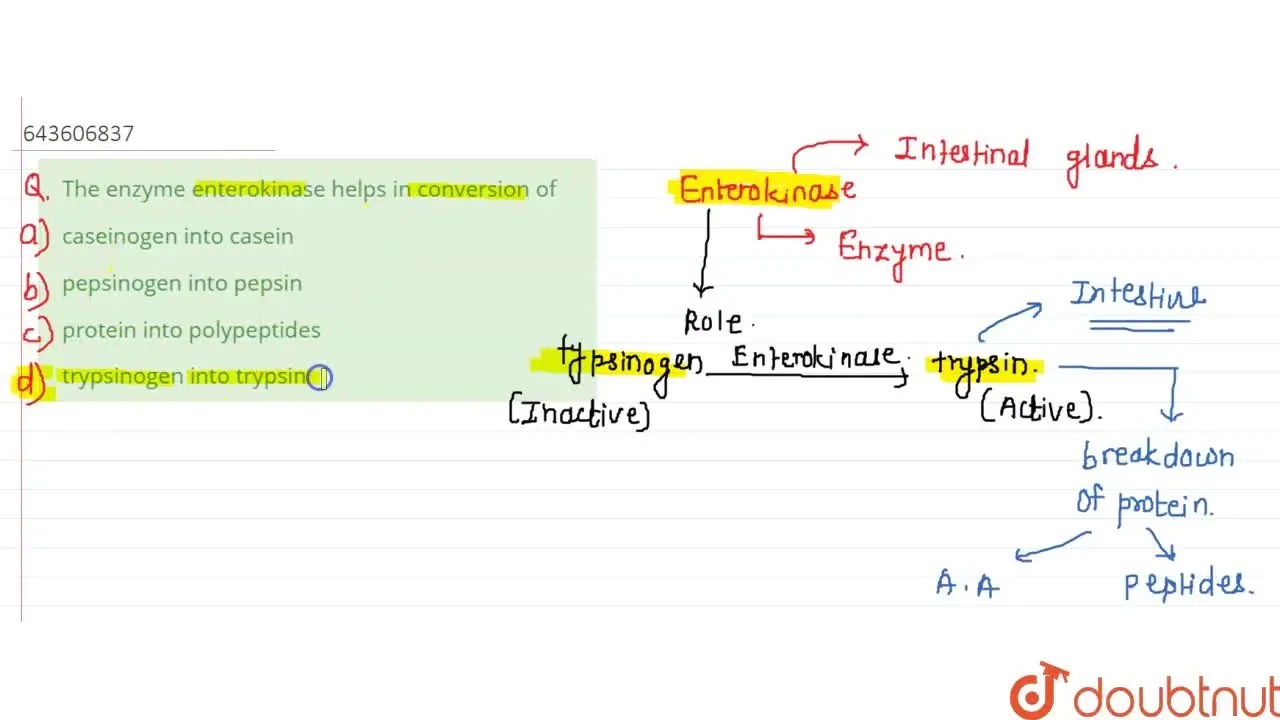 643606837
Q. The enzyme enterokinase helps in conversion of
a) caseinogen into casein
b) pepsinogen into pepsin
c) protein into polypeptides
d) trypsinogen into trypsin
Intestinal glands.
Enterokinase
Enzyme.
Role.
Intestine
typsinogen Enterokinase. trypsin.
(Inactive) (Active).
breakdown
of protein.
A.A peptides.
doubtnut